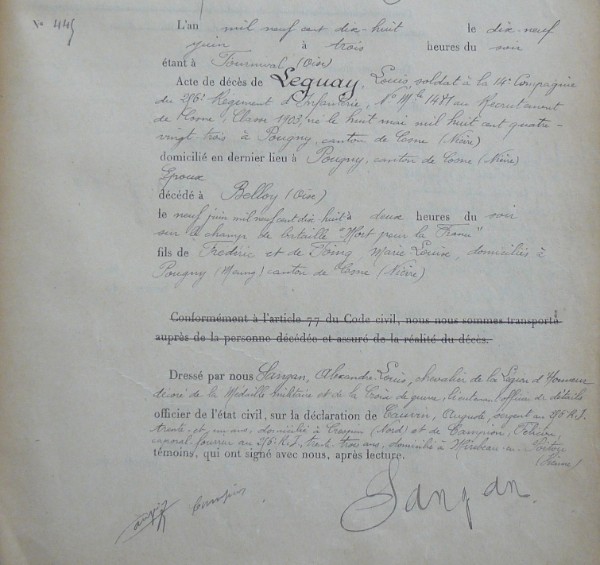 No 445
L'an mil neuf cent dix-huit le dix-neuf
juin à trois heures du soir
étant à Tournival (Oise)
Acte de décès de Leguay, Louis, soldat à la 14e Compagnie
du 276e Régiment d'Infanterie, No Mle 1471 au Recrutement
de Cosne, Classe 1903, né le huit mai mil huit cent quatre-
vingt trois à Pougny, canton de Cosne (Nièvre)
domicilié en dernier lieu à Pougny, canton de Cosne (Nièvre)
Epoux
décédé à Belloy (Oise)
le neuf juin mil neuf cent dix huit à deux heures du soir
sur le champ de bataille "Mort pour la France"
fils de Frédéric et de Marie Louise, domiciliés à
Pougny canton de Cosne (Nièvre)
Conformément à l'article 77 du Code civil, nous nous sommes transporté
auprès de la personne décédée et assuré de la réalité du décès.
Dressé par nous Sangan, Alexandre Louis, chevalier de la Légion d'Honneur
décoré de la Médaille militaire et de la Croix de guerre, Lieutenant officier de détails
officier de l'état civil, sur la déclaration de Auguste, sergent au 276 R.I.
trente et un ans, domicilié à Crespin (Nord) et de Campion, Félicien,
caporal fourrier au 276e R.I. trente trois ans, domicilié à Mirebeau en Poitou
(Vienne)
témoins, qui ont signé avec nous, après lecture.
Campion
Sangan